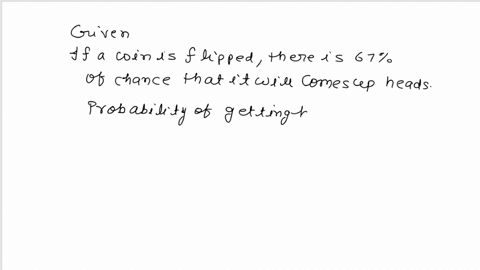 Given
If a coin is flipped, there is 67%
of chance that it will comes up heads.
Probability of getting